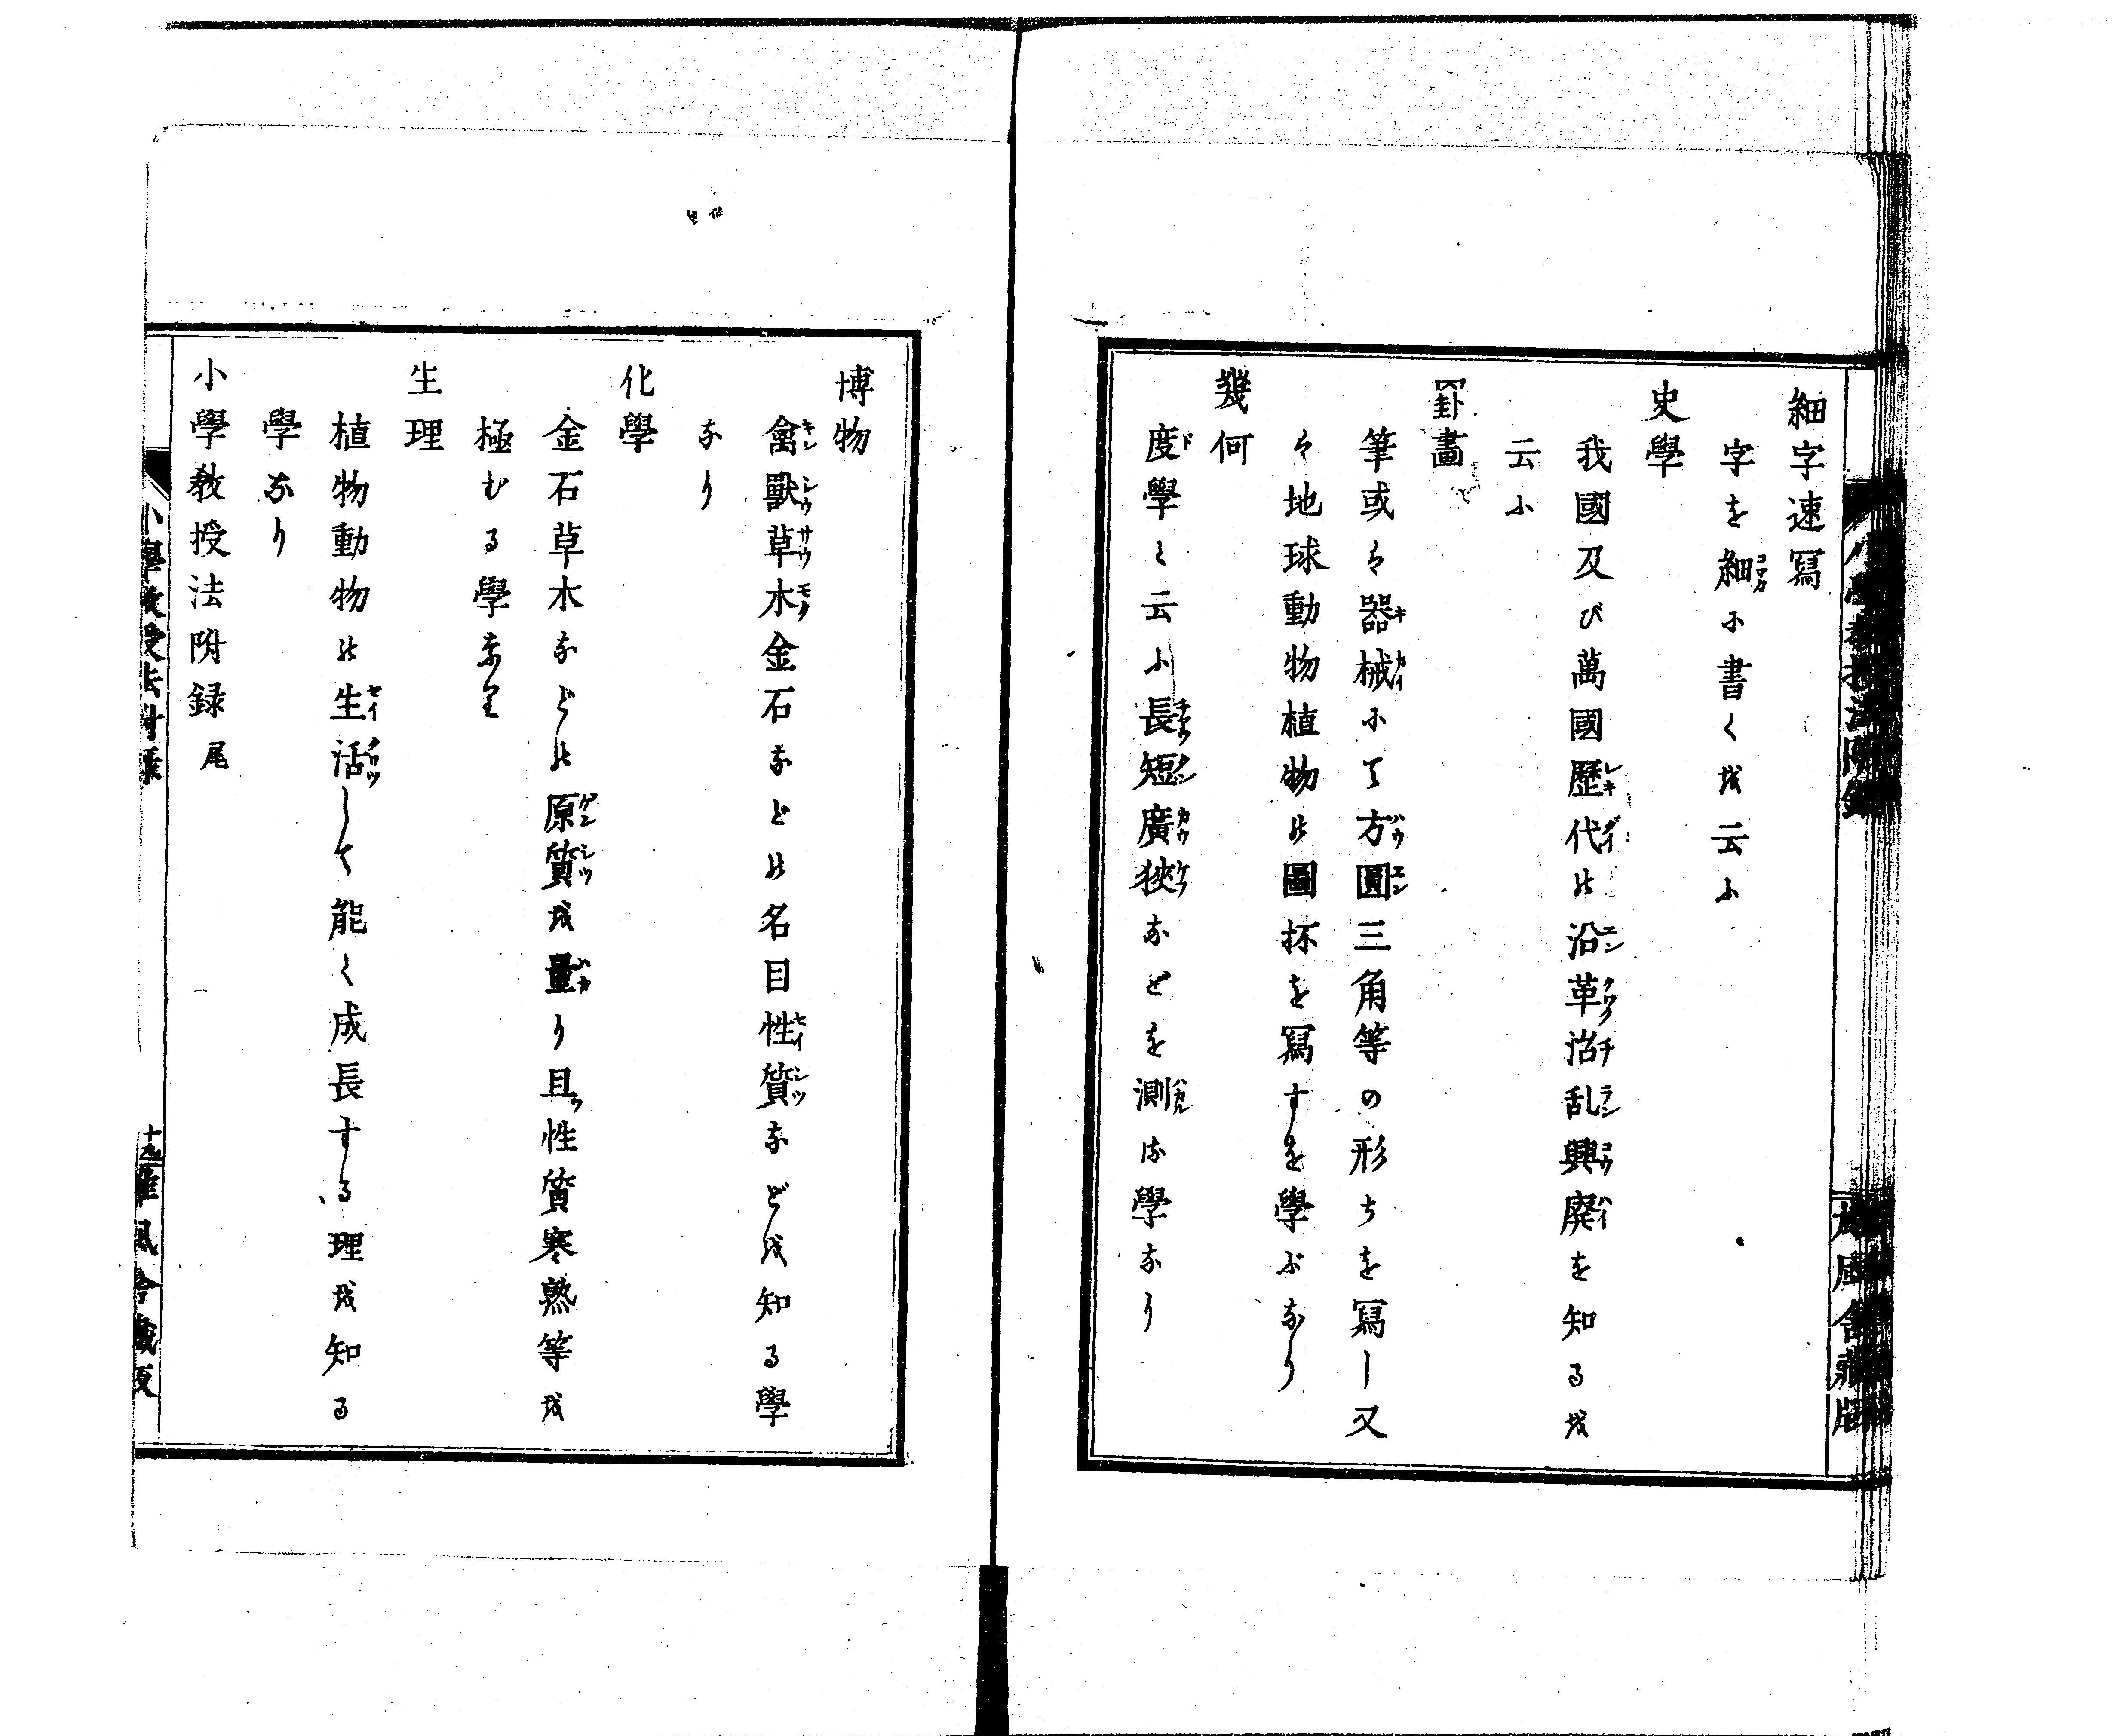 細字速寫
字を細に書くを云ふ
史學
我國及び萬國歷代の沿革治乱興廢を知るを
云ふ
罫畫
筆或は器械にて方圓三角等の形ちを寫し又
は地球動物植物の圖抔を寫すを學ぶなり
幾何
度學と云ふ長短廣狹などを測る學なり
博物
禽獸草木金石などの名目性質などを知る學
なり
化學
金石草木などの原質を量り且性質寒熟等を
極むる學なり
生理
植物動物の生活して能く成長する理を知る
學なり
小學教授法附録 尾
小學教授法附録